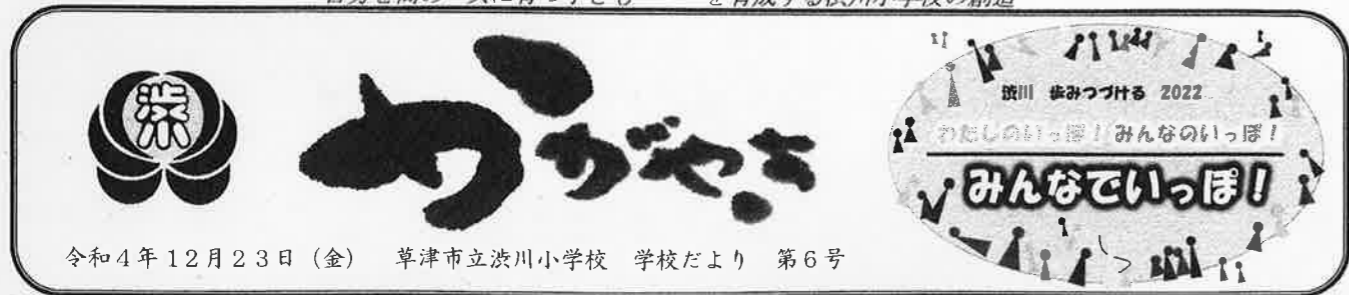 を育成する渋川小学校の創造
渋
かがやき
渋川 歩みつづける 2022
わたしのいっぽ！みんなのいっぽ！
みんなでいっぽ！
令和4年12月23日（金） 草津市立渋川小学校 学校だより 第6号